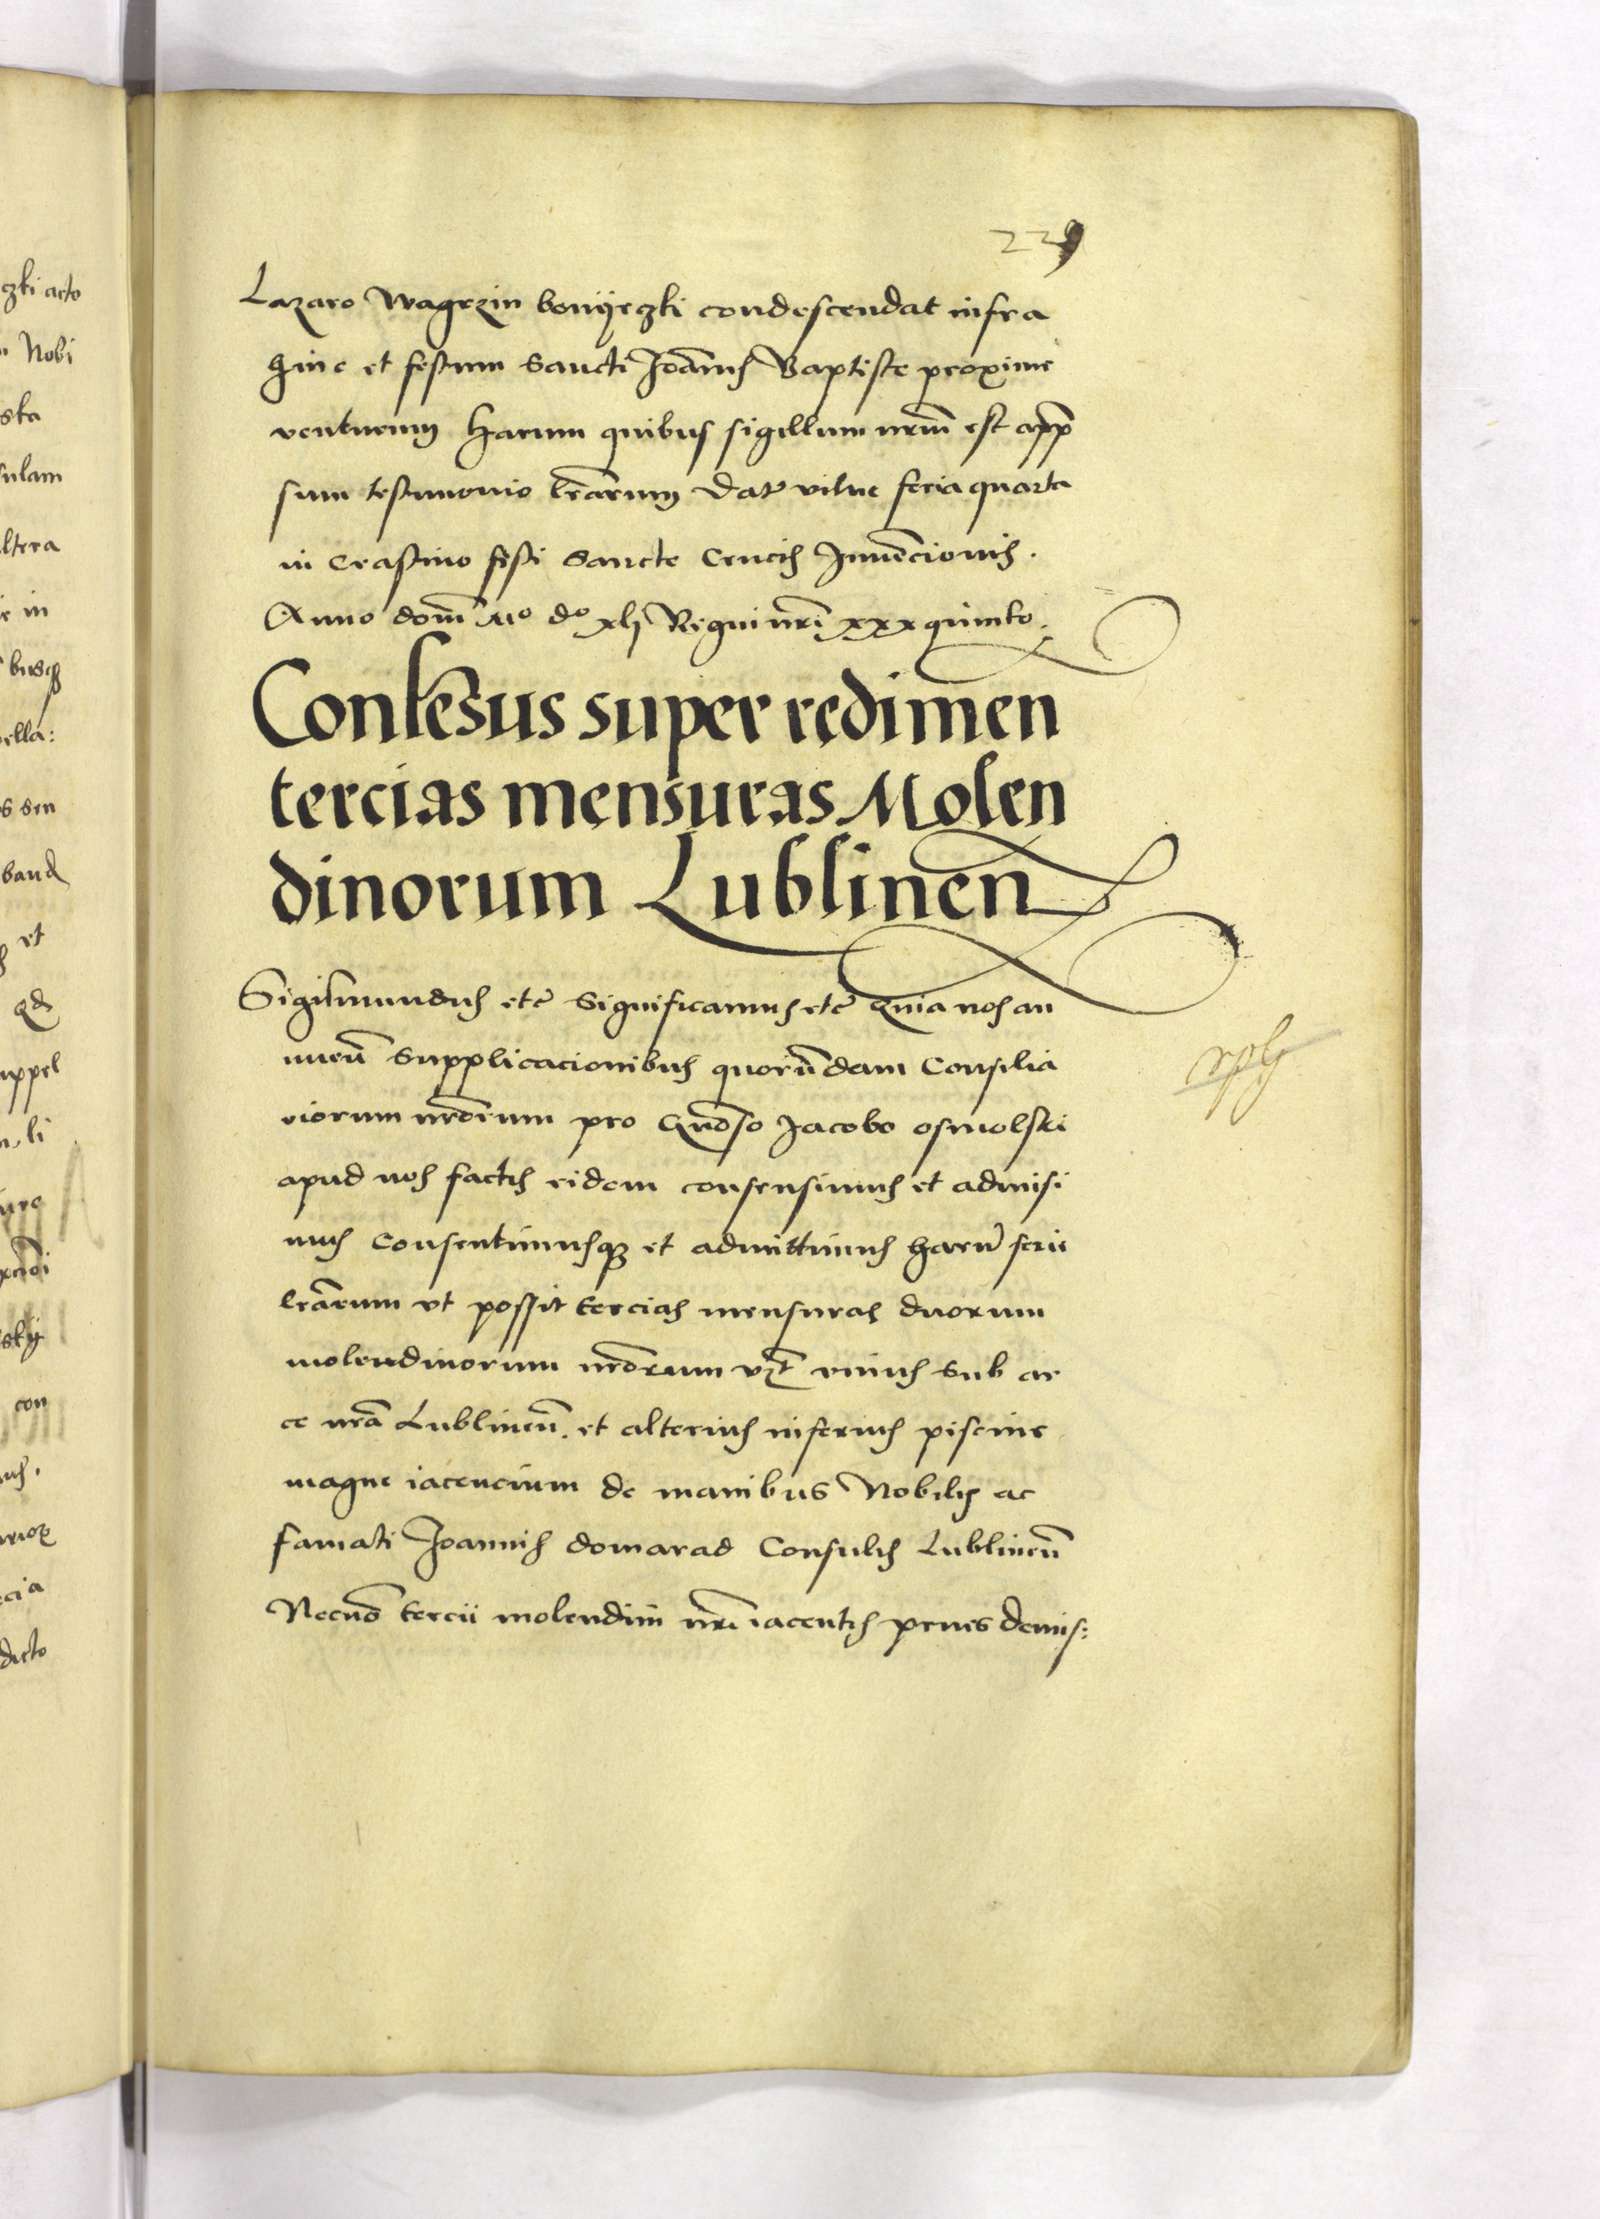 229
Lazaro Wagrzin bonijeczki condescendat infra
hinc et festum Sancti Joānis Baptiste proxime
venturum Harum quibus sigillum nrūm est app
sum testimonio lrārum Dat vilne feria quarta
in Crastino festi Sancte Crucis Invēcionis.
Anno domī Mo do xlj Regni nrī xxx quinto.
Consēsus super redimen
tercias mensuras Molen
dinorum Lublinēn
Sigismundus etc Significamus etc Quia nos an
nuen̄ Supplicacionibus quorūdam Consilia
riorum nrōrum pro Gnōso Jacobo osmolski
apud nos factis eidem consensimus et admisi
mus Consentimusq3 et admittimus harū serie
lrārum vt possit tercias mensuras duorum
molendinorum nrōrum vz̄t vnius sub ar
ce nrā Lublinen̄. et alterius inferius piscine
magne iacencium de manibus Nobilis ac
famati Joannis domarad Consulis Lublinen̄
Necnō tercii molendini nrī iacentis penes demis:
zki acto
Nobi
ska
sulam
altera
in
busq3
sen
et
uppel
con
dicto